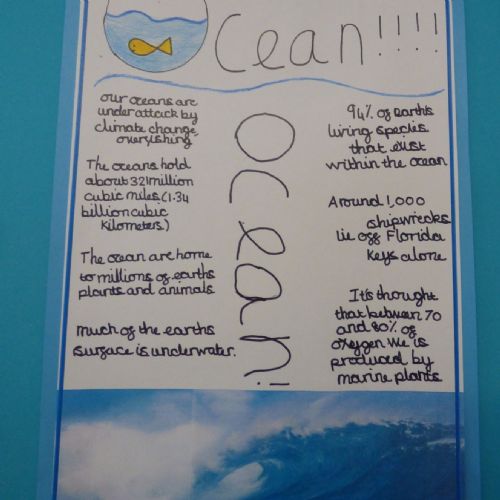 Ocean!!!!
our oceans are
under attack by
climate change,
overfishing
The oceans hold
about 321 million
cubic miles (1.34
billion cubic
kilometers)
The ocean are home
to millions of earths
plants and animals
Much of the earths
surface is underwater.
Ocean!
94% of earths
living species
that exist
within the ocean
Around 1,000
shipwrecks
lie off Florida
keys alone
It's thought
that between 70
and 80% of
oxygen we is
produced by
marine plants